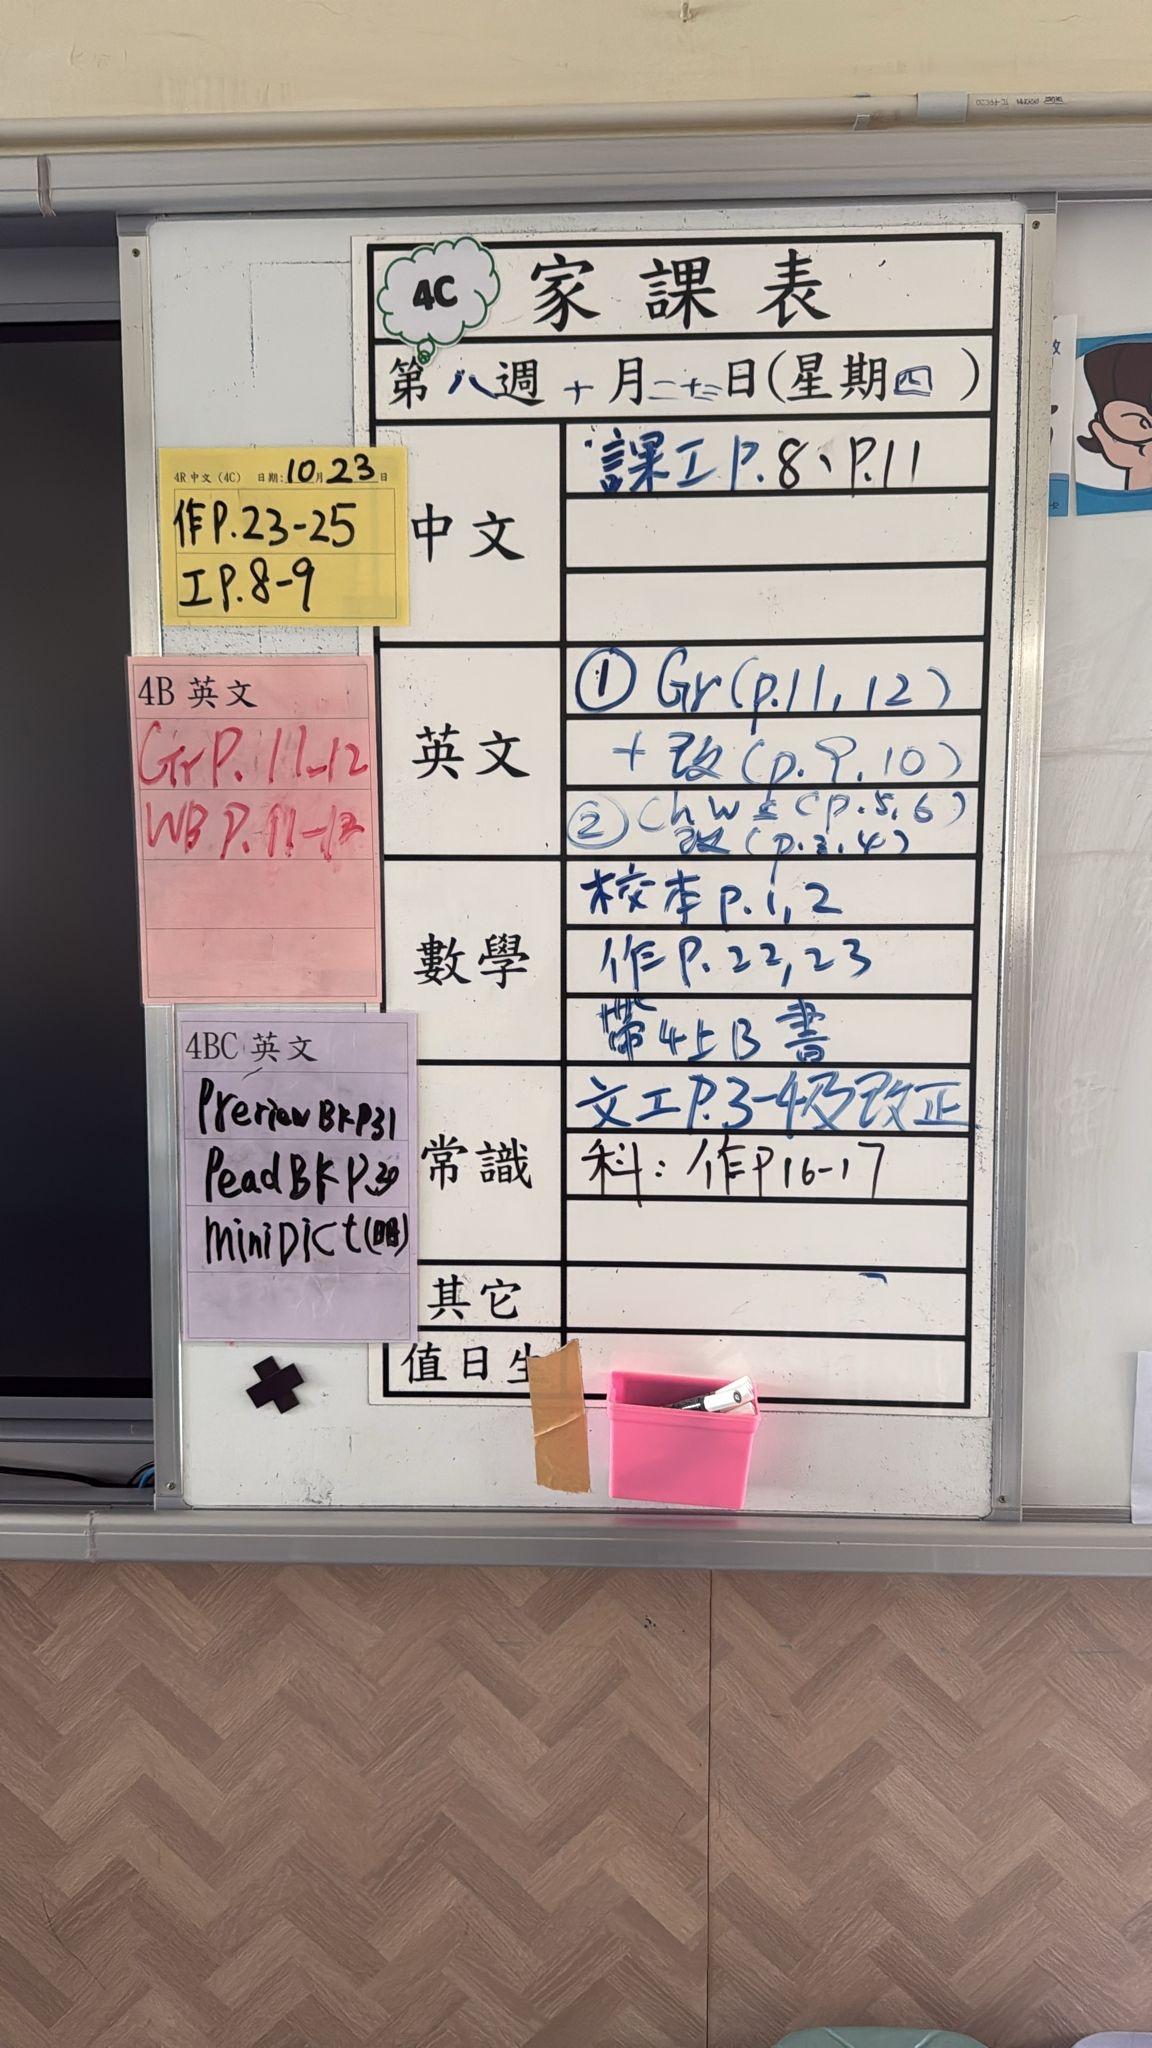 4C
家課表
第八週十月二十三日(星期四)
4R中文(4C) 日期:10月23日
作P.23-25
工P.8-9
中文
課工P.8、P.11
4B 英文
Gr P. 11-12
WB P. 11-12
英文
① Gr (p.11, 12)
+ 改 (p. 9, 10)
② C h w (p.5,6)
改 (p.3,4)
數學
校本 p.1,2
作 P. 22,23
帶4上B書
4BC 英文
Preview BK P31
Read BK P.30
mini Dict
常識
文工P.3-4及改正
科：作P16-17
其它
值日生